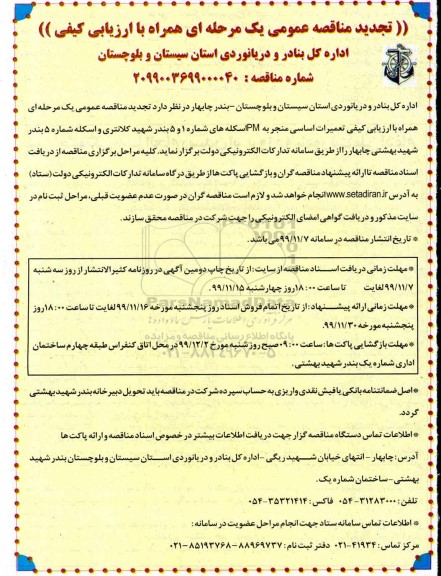 (( تجدید مناقصه عمومی یک مرحله ای همراه با ارزیابی کیفی ))
اداره کل بنادر و دریانوردی استان سیستان و بلوچستان
شماره مناقصه : ۲۰۹۹۰۰۳۶۹۹۰۰۰۰۴۰
اداره کل بنادر و دریانوردی استان سیستان و بلوچستان -بندر چابهار در نظر دارد تجدید مناقصه عمومی یک مرحله ای
همراه با ارزیابی کیفی تعمیرات اساسی منجر به PM اسکله های شماره ۱ و ۵ بندر شهید کلانتری و اسکله شماره ۵ بندر
شهید بهشتی چابهار را از طریق سامانه تدارکات الکترونیکی دولت برگزار نماید. کلیه مراحل برگزاری مناقصه از دریافت
اسناد مناقصه تا ارائه پیشنهاد مناقصه گران و بازگشایی پاکت ها از طریق درگاه سامانه تدارکات الکترونیکی دولت (ستاد)
به آدرس www.setadiran.ir انجام خواهد شد و لازم است مناقصه گران در صورت عدم عضویت قبلی، مراحل ثبت نام در
سایت مذکور و دریافت گواهی امضای الکترونیکی را جهت شرکت در مناقصه محقق سازند.
* تاریخ انتشار مناقصه در سامانه ۹۹/۱۱/۷ می باشد.
*مهلت زمانی دریافت اسناد مناقصه از سایت: از تاریخ چاپ دومین آگهی در روزنامه کثیرالانتشار از روز سه شنبه
۹۹/۱۱/۷ لغایت تا ساعت ۱۸:۰۰ روز چهارشنبه ۹۹/۱۱/۱۵.
*مهلت زمانی ارائه پیشنهاد: از تاریخ اتمام فروش اسناد روز پنجشنبه مورخه ۹۹/۱۱/۱۶ لغایت تا ساعت ۱۸:۰۰ روز
پنجشنبه مورخه ۹۹/۱۱/۳۰.
*مهلت بازگشایی پاکت ها: ساعت ۰۹:۰۰ صبح روز شنبه مورخ ۹۹/۱۲/۲ در محل اتاق کنفراس طبقه چهارم ساختمان
اداری شماره یک بندر شهید بهشتی.
*اصل ضمانتنامه بانکی یا فیش نقدی واریزی به حساب سپرده شرکت در مناقصه باید تحویل دبیرخانه بندر شهید بهشتی
گردد.
*اطلاعات تماس دستگاه مناقصه گزار جهت دریافت اطلاعات بیشتر در خصوص اسناد مناقصه و ارائه پاکت ها
آدرس: چابهار - انتهای خیابان شهید ریگی -اداره کل بنادر و دریانوردی استان سیستان و بلوچستان بندر شهید
بهشتی -ساختمان شماره یک.
تلفن: ۳۱۲۸۳۰۰۰-۰۵۴ فاکس: ۳۵۳۲۱۴۱۴-۰۵۴
* اطلاعات تماس سامانه ستاد جهت انجام مراحل عضویت در سامانه :
مرکز تماس : ۴۱۹۳۴-۰۲۱ دفتر ثبت نام : ۸۸۹۶۹۷۳۷-۸۵۱۹۳۷۶۸-۰۲۱
ParsNamadData
پایگاه اطلاع رسانی مناقصه و مزایده
۰۲۱-۸۸۳۴۹۶۷۰-۵